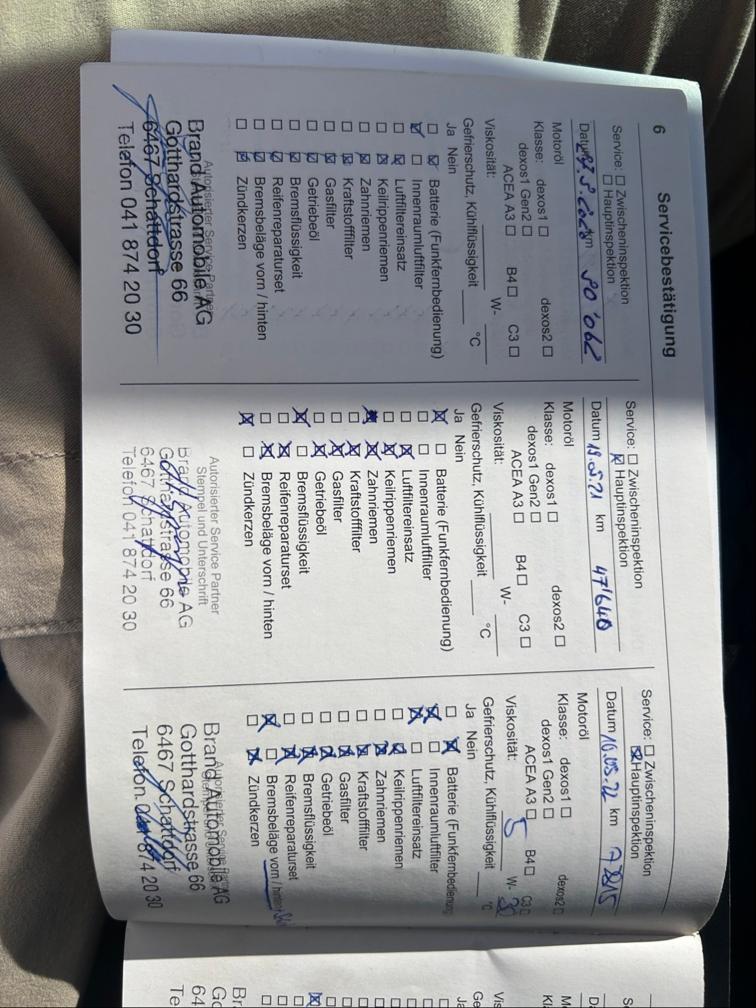 6
Servicebestätigung
Service: ☐ Zwischeninspektion
☐ Hauptinspektion
Datum km
Motoröl
Klasse: dexos1 ☐ dexos2 ☐
dexos1 Gen2 ☐
ACEA A3 ☐ B4 ☐ C3 ☐
Viskosität: W-
Gefrierschutz, Kühlflüssigkeit °C
Ja Nein
☐ ☒ Batterie (Funkfernbedienung)
☒ ☐ Innenraumluftfilter
☐ ☒ Luftfiltereinsatz
☐ ☒ Keilrippenriemen
☐ ☒ Zahnriemen
☐ ☒ Kraftstofffilter
☐ ☒ Gasfilter
☐ ☒ Getriebeöl
☐ ☒ Bremsflüssigkeit
☐ ☒ Reifenreparaturset
☐ ☒ Bremsbeläge vorn / hinten
☐ ☒ Zündkerzen
Autorisierter Service Partner
Brand Automobile AG
Gotthardstrasse 66
6467 Schattdorf
Telefon 041 874 20 30
Service: ☐ Zwischeninspektion
☒ Hauptinspektion
Datum km 47'640
Motoröl
Klasse: dexos1 ☐ dexos2 ☐
dexos1 Gen2 ☐
ACEA A3 ☐ B4 ☐ C3 ☐
Viskosität: W-
Gefrierschutz, Kühlflüssigkeit °C
Ja Nein
☒ ☐ Batterie (Funkfernbedienung)
☐ ☐ Innenraumluftfilter
☐ ☒ Luftfiltereinsatz
☐ ☒ Keilrippenriemen
☒ ☒ Zahnriemen
☐ ☒ Kraftstofffilter
☐ ☒ Gasfilter
☐ ☒ Getriebeöl
☒ ☐ Bremsflüssigkeit
☐ ☒ Reifenreparaturset
☐ ☒ Bremsbeläge vorn / hinten
☒ ☐ Zündkerzen
Autorisierter Service Partner
Stempel und Unterschrift
Brand Automobile AG
Gotthardstrasse 66
6467 Schattdorf
Telefon 041 874 20 30
Service: ☐ Zwischeninspektion
☒ Hauptinspektion
Datum 16.05.22 km
Motoröl
Klasse: dexos1 ☐ dexos2 ☐
dexos1 Gen2 ☐
ACEA A3 ☐ B4 ☐ C3 ☐
Viskosität: 5 W- 30
Gefrierschutz, Kühlflüssigkeit °C
Ja Nein
☐ ☒ Batterie (Funkfernbedienung
☒ ☐ Innenraumluftfilter
☒ ☐ Luftfiltereinsatz
☐ ☒ Keilrippenriemen
☐ ☒ Zahnriemen
☐ ☒ Kraftstofffilter
☐ ☒ Gasfilter
☐ ☒ Getriebeöl
☐ ☒ Bremsflüssigkeit
☐ ☒ Reifenreparaturset
☒ ☐ Bremsbeläge vorn / hinten
☐ ☒ Zündkerzen
Brand Automobile AG
Gotthardstrasse 66
6467 Schattdorf
Telefon 041 874 20 30